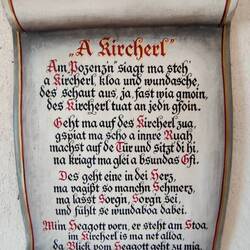 „A Kircherl”
Am Pozenzn' siagt ma steh'
a Kircherl, kloa und wundasche,
des schaut aus, ja, fast wia gmoin,
des Kircherl tuat an jedn gfoin.
Geht ma auf des Kircherl zua,
gspiat ma scho a innre Ruah
machst auf de Tür und sitzt di hi,
na kriagt ma glei a bsundas Gfi.
Des geht eine in dei Herz,
ma vagißt so manchn Schmerz,
ma lasst Sorgn, Sorgn sei,
und fühlt se wundaboa dabei.
Mim Heagott vorn, er steht am Stoa,
im Kircherl is ma net alloa,
da Blick vom Heagott geht zu mia,